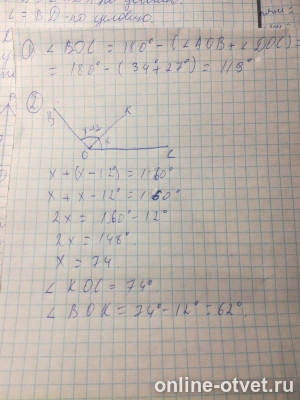 ∠ = BD - по условию.
① ∠BOC = 180° - (∠AOB + ∠DOC) =
= 180° - (34° + 27°) = 119°
②
B
K
x-12
x
O
C
x + (x - 12°) = 160°
x + x - 12° = 160°
2x = 160° - 12°
2x = 148°
x = 74
∠KOC = 74°
∠BOK = 74° - 12° = 62°
online-otvet.ru